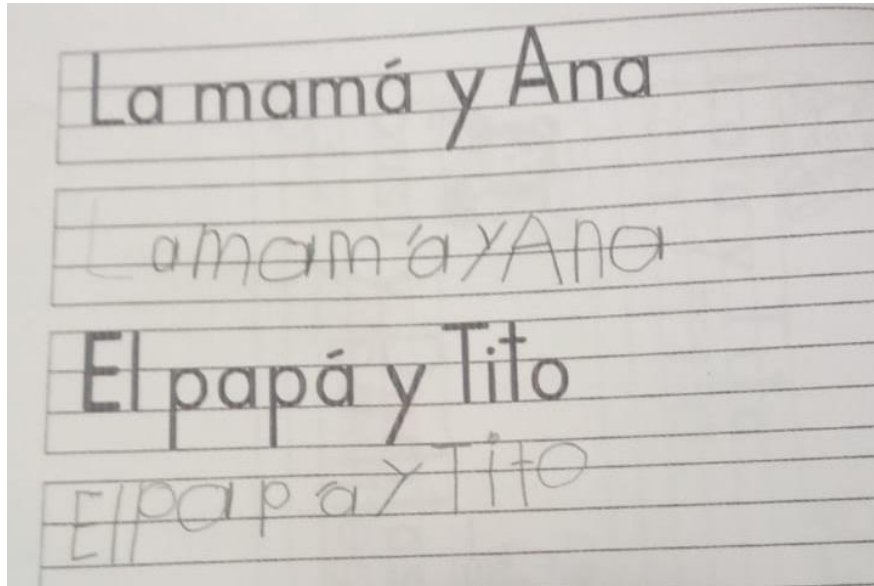 La mamá y Ana
La mamá y Ana
El papá y Tito
El papá y Tito